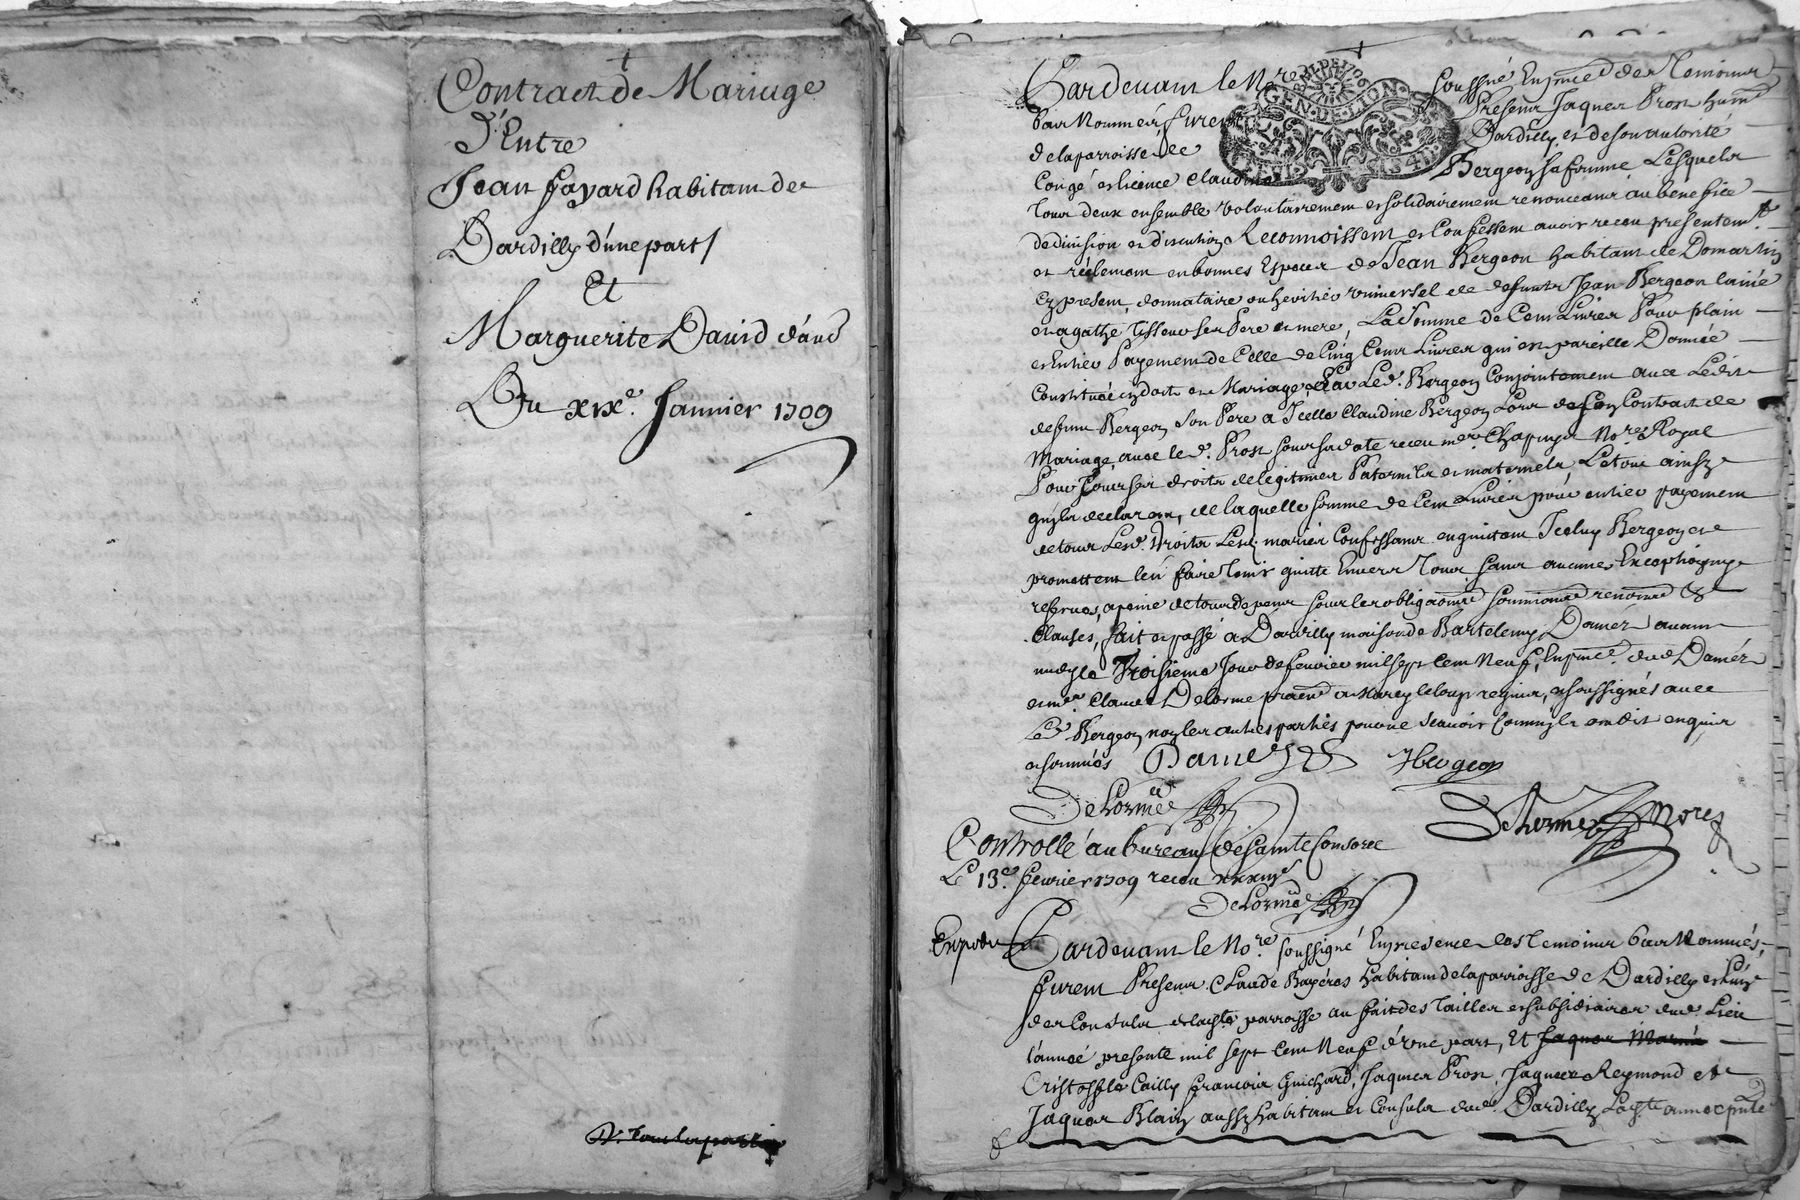 Contract de Mariage
D'Entre
Jean fayard habitant de
Dardilly d'une part
Et
Marguerite David d'aue
Du xixe. Janvier 1709
Pardevant le Nore soussigné En pnce des Temoins
bas Nommés furent Presens Jaques Pros
de la parroisse de Dardilly et de son autorité
Congé et licence Claudine Bergeon sa femme Lesquels
Tous deux ensemble volontairement et solidairement renonceans au benefice
de division et discution Reconnoissent et Confessent avoir receu presentemt
et réelement en bonnes Especes de Jean Bergeon habitant de Domartin
Cy present, donnataire ou heritier universel de defunts Jean Bergeon lainé
et agathe Tisseur ses Pere et mere, La Somme de Cent Livres Pour plain
et Entier Payement de Celle de Cinq Cent Livres qui en pareille Donnée
Constituée en dot en Mariage Par Led. Bergeon Conjointement avec Ledit
defunt Bergeon Son Pere a Icelle Claudine Bergeon Lors de son Contract de
Mariage avec le d. Pros receu me Nore Royal
Pour Tous ses droits de legitimes Paternels et maternels, Le tout ainsy
qu'ils declarent, de laquelle somme de Cent Livres pour entier payement
de tous Lesd. droits Lesd. mariés Confessans en quittent Iceluy Bergeon et
promettent l'en faire Tenir quitte Envers Tous sans aucunes Exception ny
reserves, a peine de tous depens sous les obligaons soumissions renonce &
Clauses, fait et passé a Dardilly maison de Bartelemy Damez avant
midy le Troisieme Jour de fevrier mil sept Cent Neuf, En pnce dud. Damez
et me. Claude Delorme praticn a Marcy le loup requis, et soussignés avec
Led. Bergeon non les autres parties pour ne scavoir Comme ils ont dit enquis
et sommés Damez Bergeon
Delorme
Delorme Nore
Controllé au bureau de Sainte Consorce
Le 13e. fevrier 1709 receu
Delorme
Expedié Pardevant le Nore. soussigné En presence des Temoins bas Nommés,
furent Presens Claude habitant de la parroisse de Dardilly et L'un
des Consuls de lade parroisse au fait des Tailles et subsidiaires dud. Lieu
l'année presente mil sept Cent Neuf d'une part, Et Jaques
Cristophle Cailly francois Guichard, Jaques Pros, Jaques Reymond et
Jaques Blain aussy habitans et Consuls dud. Dardilly
GEN. DE LION